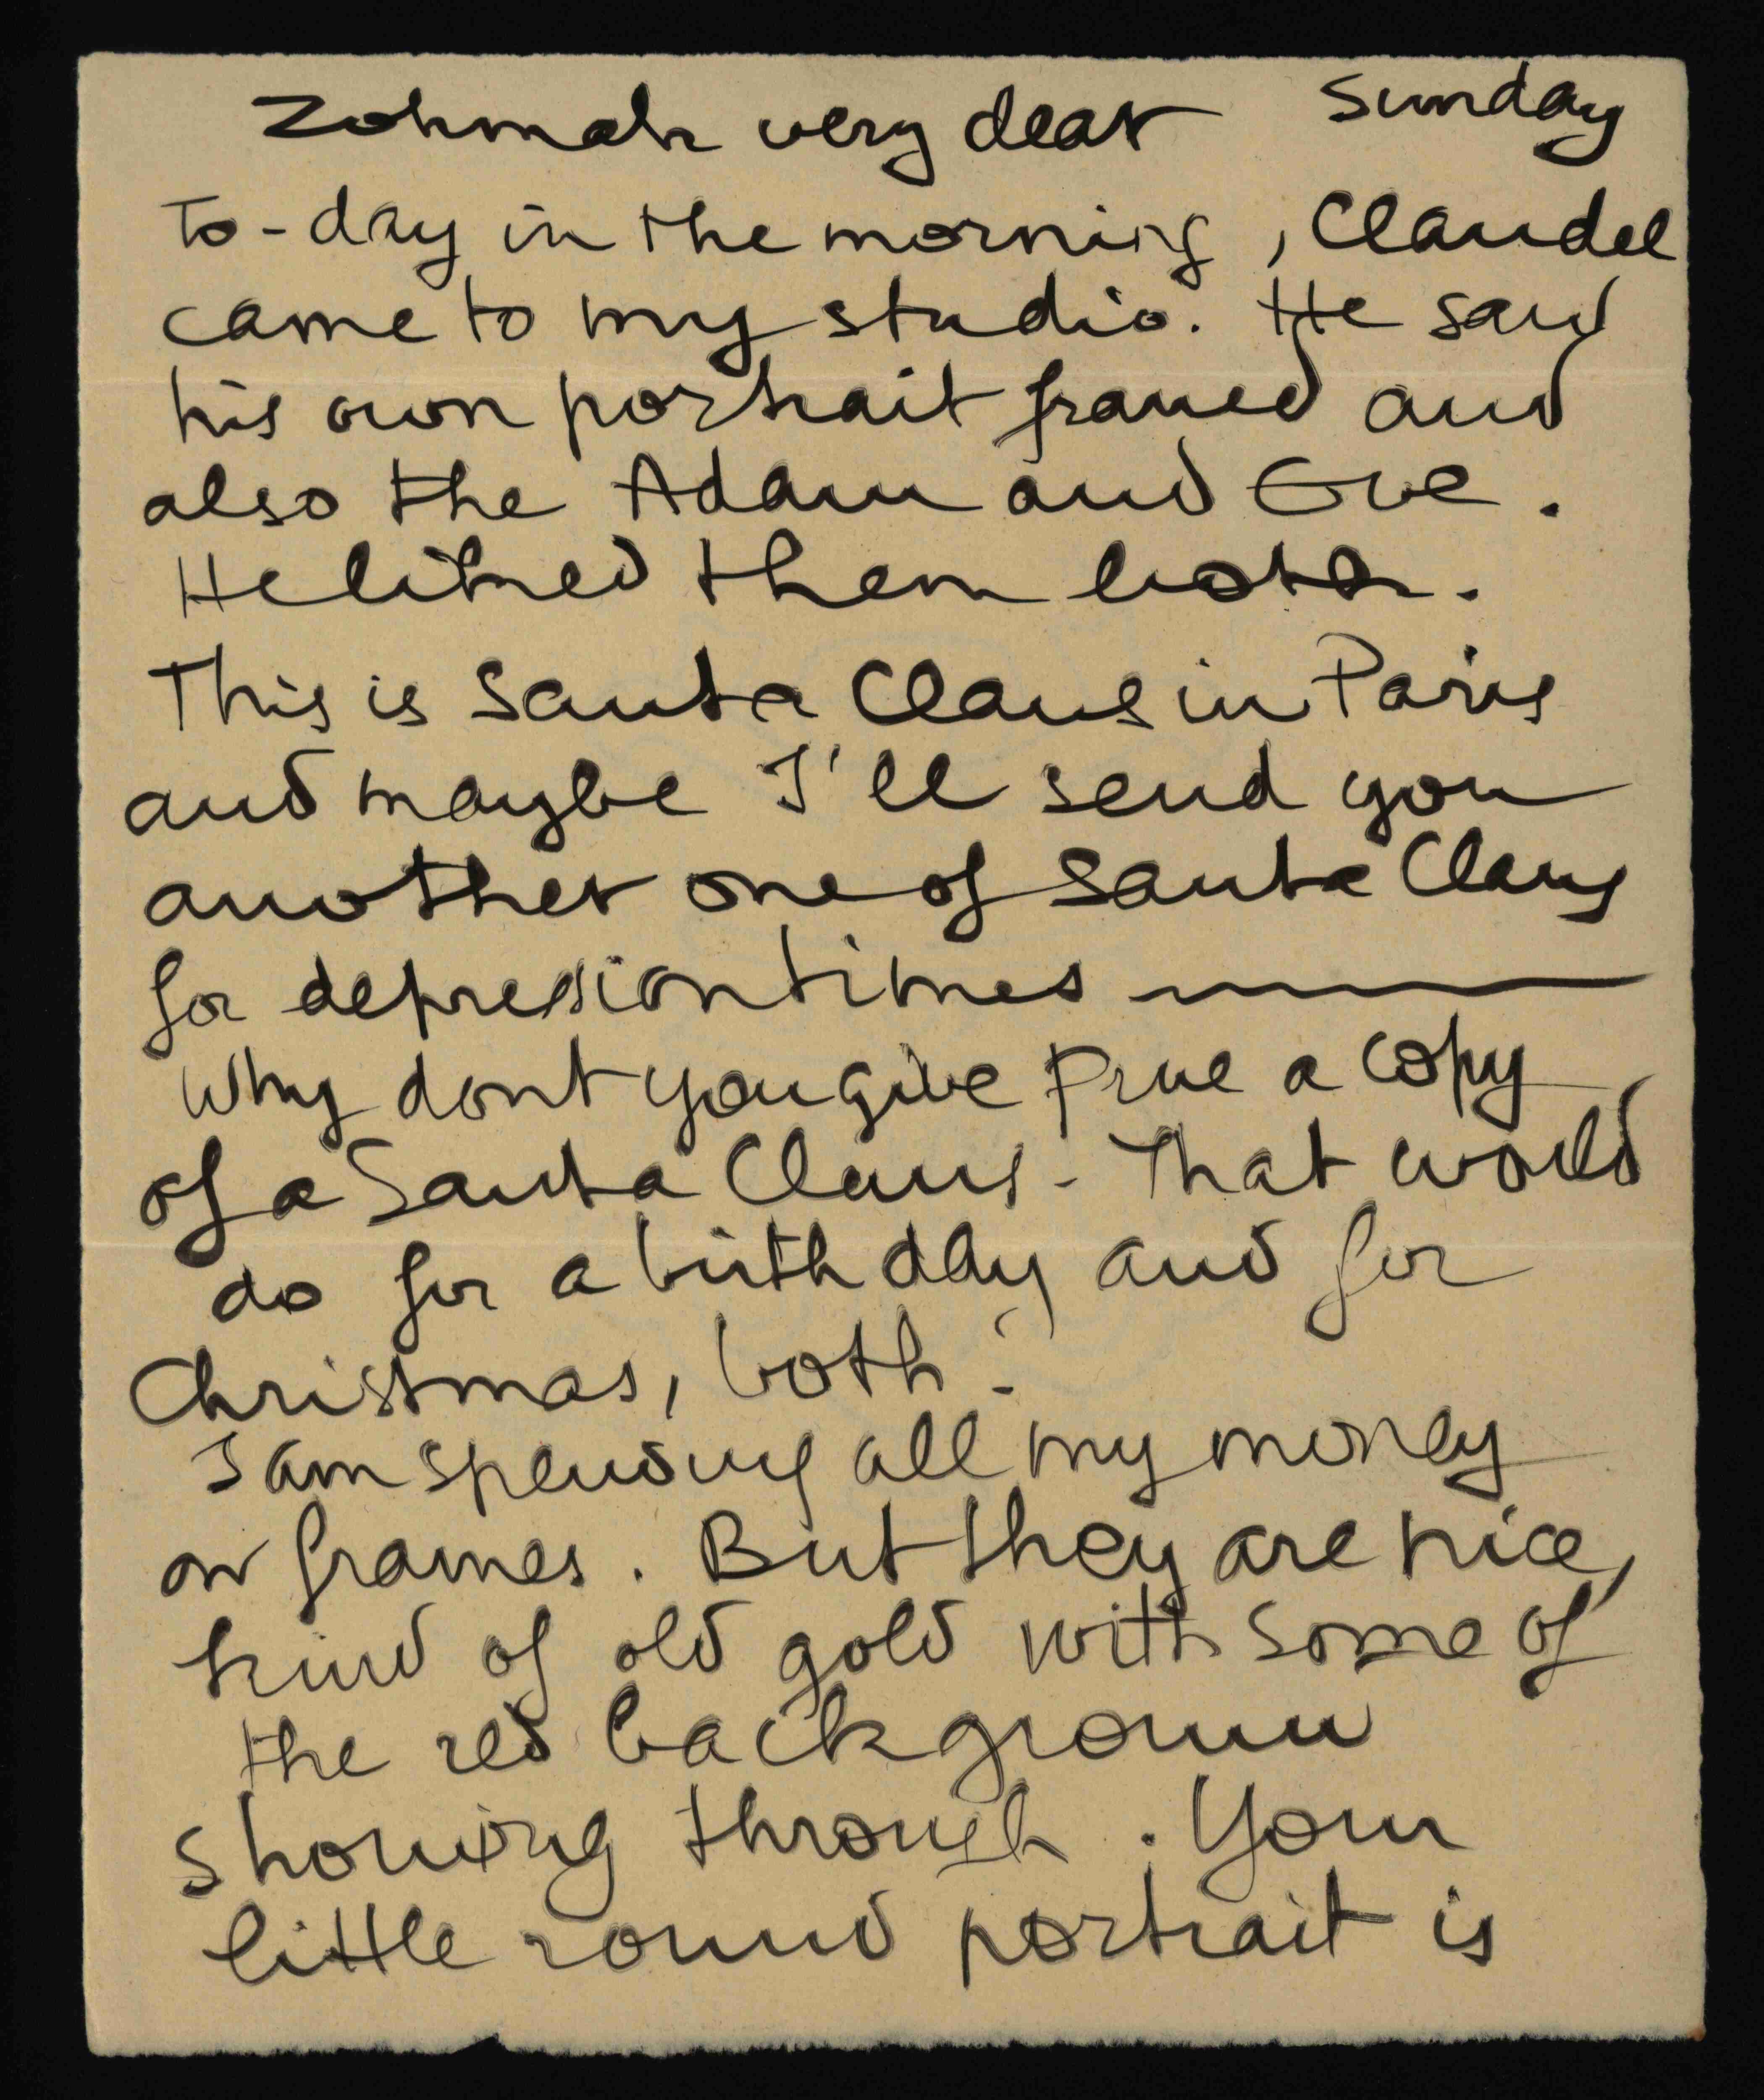 Zohmah very dear Sunday
To-day in the morning, Claudel
came to my studio. He saw
his own portrait framed and
also the Adam and Eve.
He liked them both.
This is Santa Claus in Paris
and maybe I'll send you
another one of Santa Claus
for depression times
Why dont you give Prue a copy
of a Santa Claus - That would
do for a birth day and for
Christmas, both?
I am spending all my money
on frames. But they are nice,
kind of old gold with some of
the red background
showing through. Your
little round portrait is